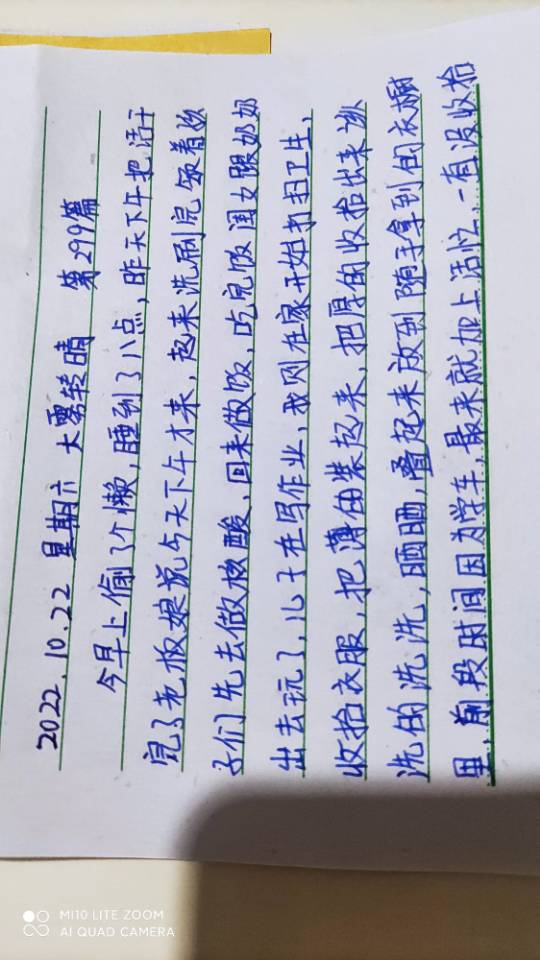 2022.10.22 星期六 大雾转晴 第299篇
今早上偷了个懒,睡到了八点,昨天下午把活干
完了老板娘说今天下午才来,起来洗刷完领着孩
子们先去做核酸,回来做饭,吃完饭闺女跟奶奶
出去玩了,儿子在写作业,我则在家开始打扫卫生,
收拾衣服,把薄的装起来,把厚的收拾出来该
洗的洗洗,晒晒,叠起来放到随手拿到的衣橱
里,前段时间因为学车,最来就加上活忙,一直没收拾
MI10 LITE ZOOM
AI QUAD CAMERA